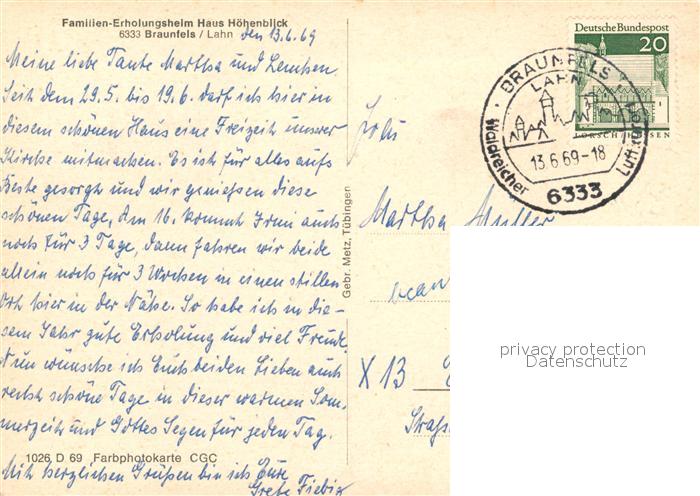 Familien-Erholungsheim Haus Höhenblick
6333 Braunfels / Lahn den 13.6.69
Meine liebe Tante Martha und
Seit dem 29.5. bis 19.6. darf ich hier in
diesem schönen Haus eine Freizeit unserer
Kirche mitmachen. Es ist für alles aufs
Beste gesorgt und wir genießen diese
schönen Tage. Am 16. kommt auch
noch für 3 Tage, dann fahren wir beide
allein noch für 3 Wochen in einen stillen
Ort hier in der Nähe. So habe ich in die-
sem Jahr gute Erholung und viel Freude.
Nun wünsche ich Euch beiden Lieben auch
recht schöne Tage in dieser warmen Som-
merzeit und Gottes Segen für jeden Tag.
1026 D 69 Farbphotokarte CGC
Mit herzlichen Grüßen bin ich Eure
Grete Fiebig
Gebr. Metz, Tübingen
Deutsche Bundespost
20
LORSCH/HESSEN
BRAUNFELS
LAHN
13.6.69-18
Waldreicher Luftkurort
6333
Frau
Martha Müller
X 13
Straße
privacy protection
Datenschutz